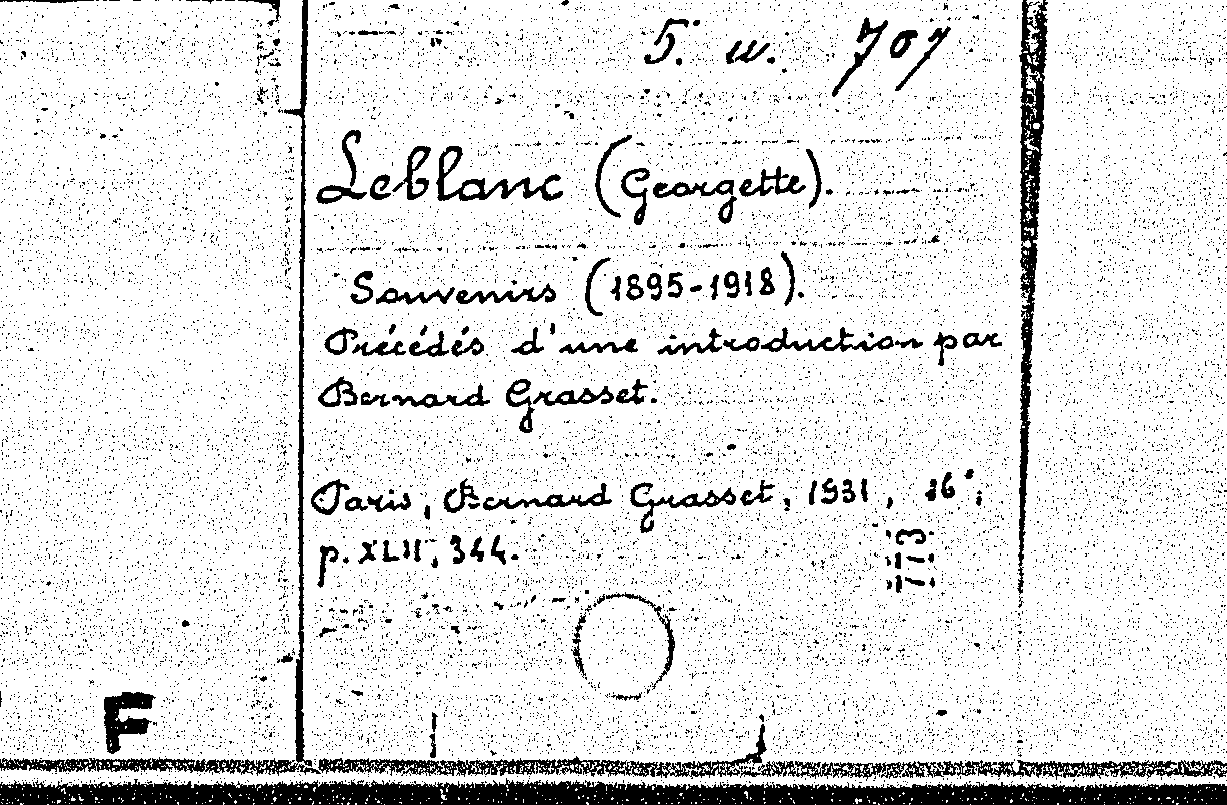 5. w. 707
Leblanc (Georgette).
Souvenirs (1895-1918).
Précédés d'une introduction par
Bernard Grasset.
Paris, Bernard Grasset, 1931, 16°;
p. XLII, 344.
773
F